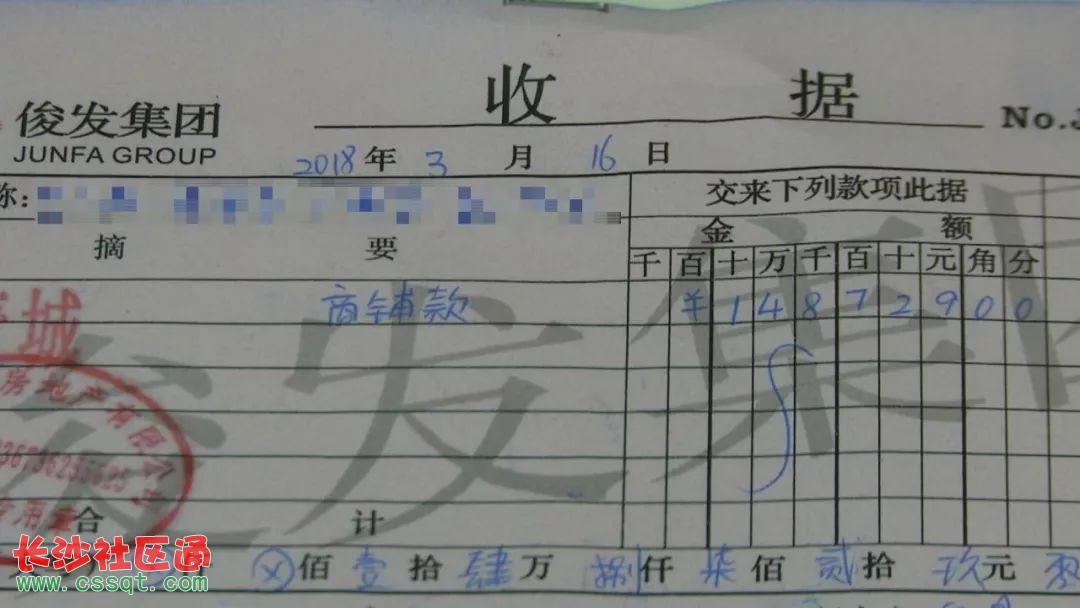 俊发集团
JUNFA GROUP
收 据
No.
2018年 3 月 16 日
称:
交来下列款项此据
摘 要
金 额
千 百 十 万 千 百 十 元 角 分
商铺款 ¥ 1 4 8 7 2 9 0 0
城
房地产有限公司
专用章
合 计
ⓧ佰 壹 拾 肆 万 捌 仟 柒 佰 贰 拾 玖 元
俊发集团
长沙社区通
www.cssqt.com